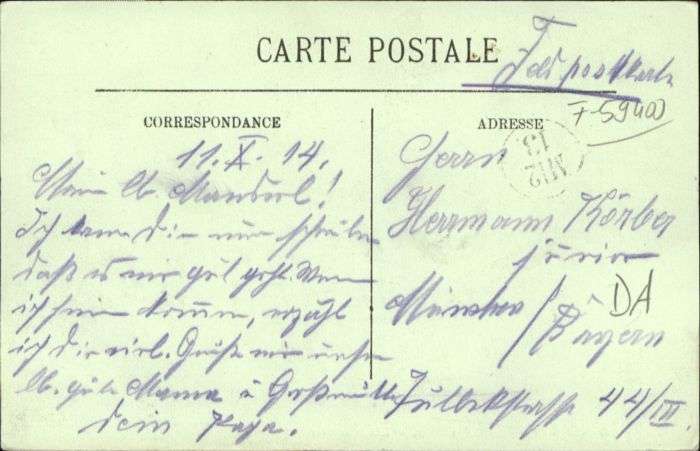 CARTE POSTALE
Feldpostkarte
F-59400
CORRESPONDANCE
11. X. 14.
Mein lb.
Ich kann Dir nur schreiben
daß es mir gut geht. Wenn
ich heim komme, erzähl
ich Dir viel. Grüße mir unsere
lb. gute Mama u Großmutter
Dein Papa.
ADRESSE
13
Herrn
Herrmann Körber
junior
München /
Bayern
DA
44/III